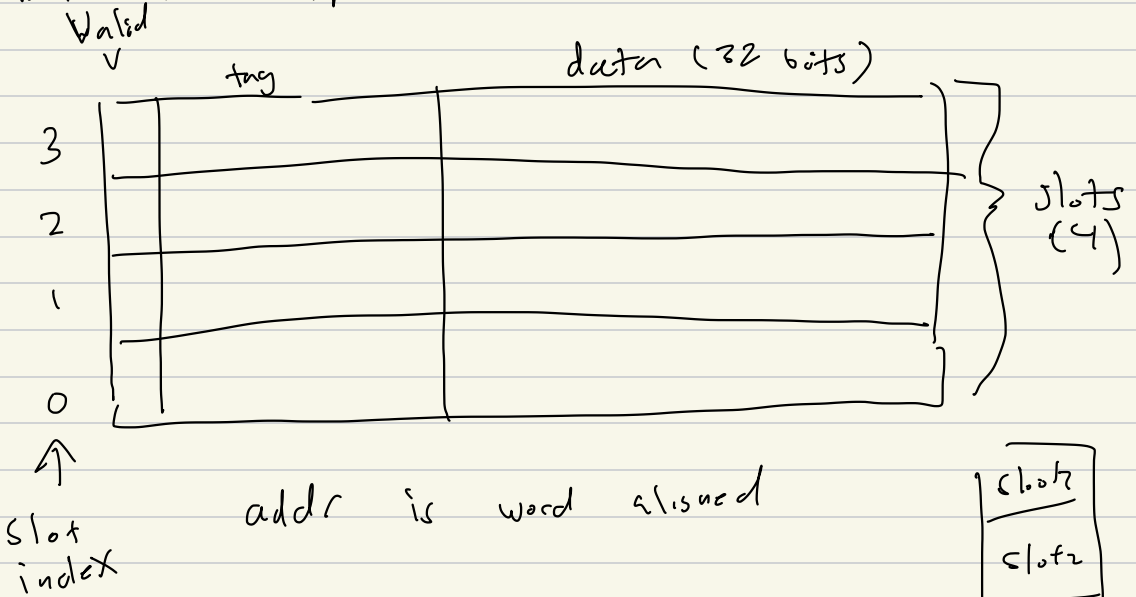 Valid
V
tag
data (32 bits)
3
2
1
0
slots
(4)
slot
index
addr is word aligned
slot2